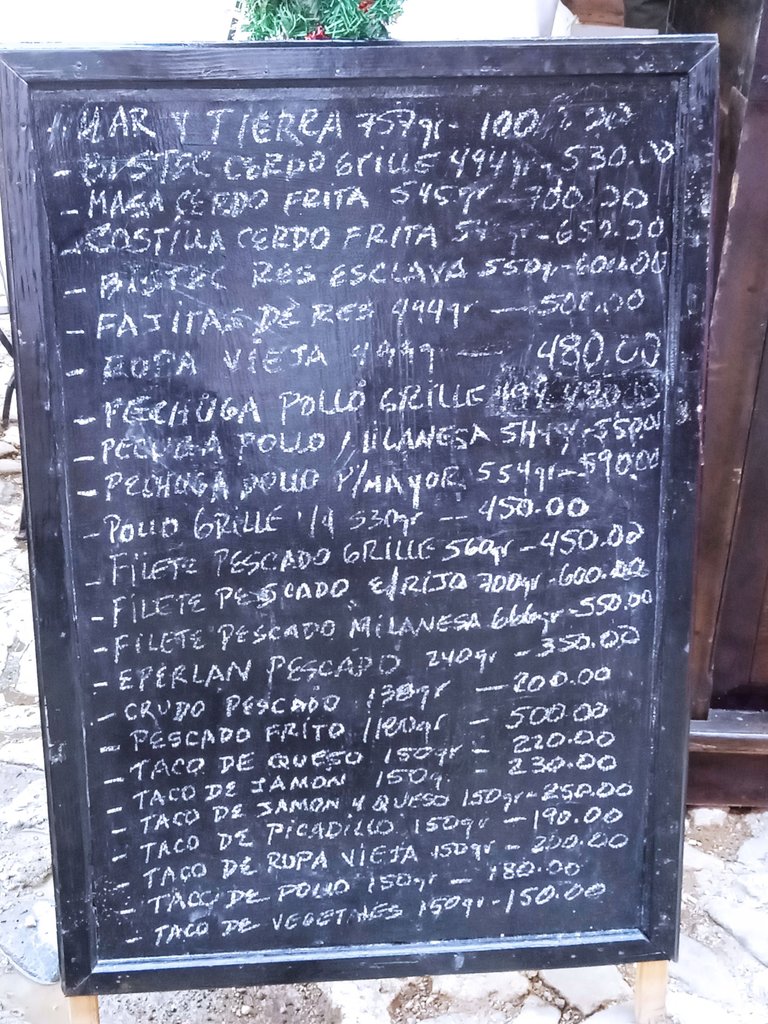 MAR Y TIERRA 757gr-
- BISTEC CERDO GRILLE 494gr-530.00
- MASA CERDO FRITA 545gr-700.00
- COSTILLA CERDO FRITA -650.00
- BISTEC RES ESCLAVA 550gr-600.00
- FAJITAS DE RES 494gr -500.00
- ROPA VIEJA - 480.00
- PECHUGA POLLO GRILLE 494
- PECHUGA POLLO MILANESA
- PECHUGA POLLO P/MAYOR 554gr-590.00
- POLLO GRILLE 1/4 530gr - 450.00
- FILETE PESCADO GRILLE 560gr-450.00
- FILETE PESCADO E/RIJO 700gr-600.00
- FILETE PESCADO MILANESA 666gr-550.00
- EPERLAN PESCADO 240gr -350.00
- CRUDO PESCADO -200.00
- PESCADO FRITO - 500.00
- TACO DE QUESO 150gr - 220.00
- TACO DE JAMON 150g - 230.00
- TACO DE JAMON Y QUESO 150gr-250.00
- TACO DE PICADILLO 150gr -190.00
- TACO DE ROPA VIEJA 150gr -200.00
- TACO DE POLLO 150gr - 180.00
- TACO DE 150gr-150.00